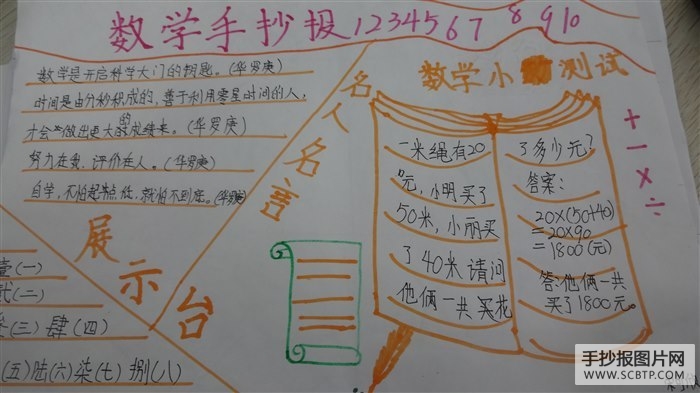 数学手抄报12345678910
数学是开启科学大门的钥匙。(华罗庚)
时间是由分秒积成的，善于利用零星时间的人，
才会做出更大的成绩来。(华罗庚)
努力在我，评价在人。(华罗庚)
自学，不怕起点低，就怕不到底。(华罗庚)
名人名言
数学小测试
一米绳有20
元，小明买了
50米，小丽买
了40米请问
他俩一共买花
了多少元?
答案:
20×(50+40)
=20×90
=1800(元)
答:他俩一共
买了1800元。
+
-
×
÷
展示台
壹(一)
贰(二)
叁(三)肆(四)
(五)陆(六)柒(七)捌(八)
手抄报图片网
WWW.SCBTP.COM